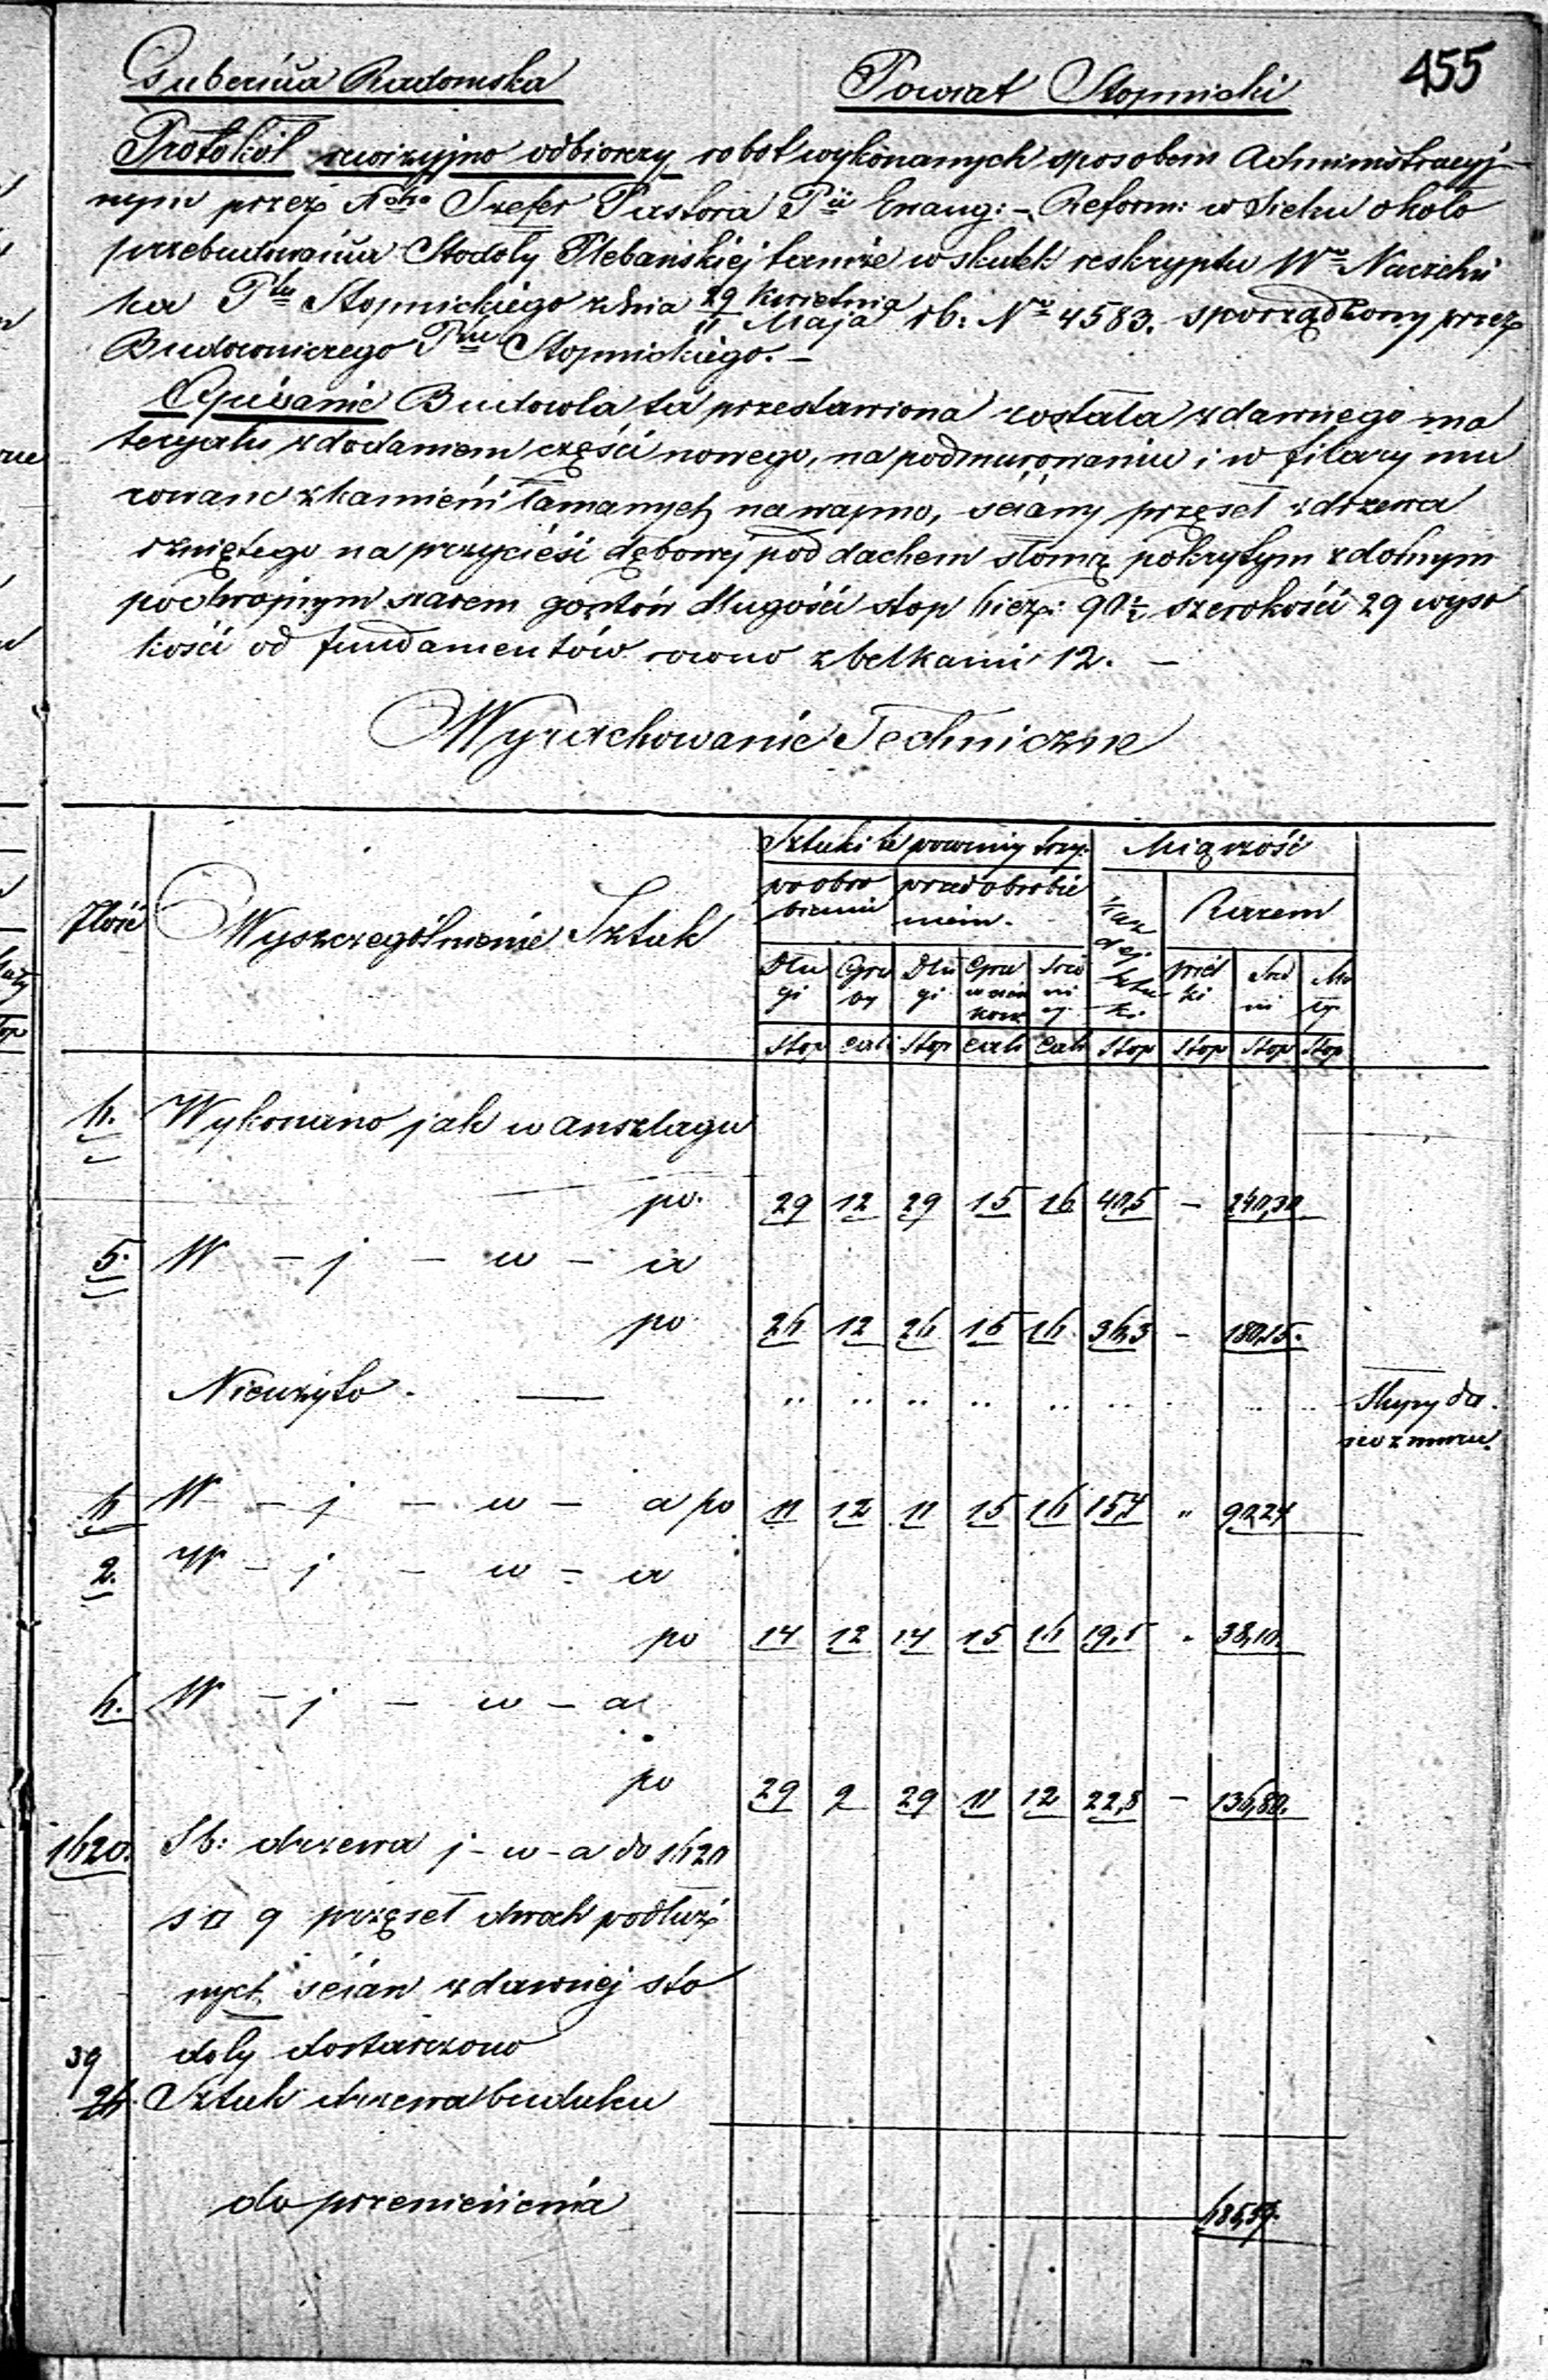 Gubernia Radomska Powiat Stopnicki 455
Protokół rewizyjno odbiorczy robot wykonanych sposobem Administracyj
nym przez Szefer Pastora Pii Ewang: - Reform: w Sielcu około
przebudowania Stodoły Plebańskiej tamże w skutk reskryptu Wo Naczelni
ka Ptu Stopnickiego z dnia 29 Kwietnia / 11 Maja rb: No 4583. sporządzony przez
Budowniczego Ptu Stopnickiego. -
Opisanie Budowla ta przestawiona została z dawnego ma
teryału z dodaniem części nowego, na podmurowaniu i w filary mu
rowane z kamieni łamanych na wapno, ściany przęseł z drzewa
rzniętego na przycieśi dębowej pod dachem słomą pokrytym z dolnym
podwojnym szarem gontów długości stop bież: 90½ szerokości 29 wyso
kości od fundamentów rowno z belkami 12. -
Wyrachowanie Techniczne
Ilość Wyszczegolnienie Sztuk
Sztuki te powinny trzy: Miąszość
po obro bieniu przed obrobie niem. Każ dej sztu ki Razem
Dłu gi Gru by Dłu gi Gru w cień końc Śred ni Śred ni Ma ły
Stop cali Stop cali cali Stop Stop Stop Stop
6. Wykonano jak w anszlagu
po. 29 12 29 15 16 40,5 - 240,30
5. W - j - w - a
po 26 12 26 15 16 36,3 - 180,15.
Nieużyto. — Słupy da
no z muru.
6 W - j - w - a po 11 12 11 15 16 15,4 " 90,24
2. W - j - w - a
po 14 12 14 15 16 19,5 " 38,10.
6. W - j - w - a
po 29 9 29 11 12 22,8 - 136,80.
1620. Sb: drzewa j - w - a do 1620
s a 9 przęseł dwoch podłuż
nych ścian z dawnej sto
doły dostarczono
39
26. Sztuk drzewa budulcu
do przeniesienia 685,59.